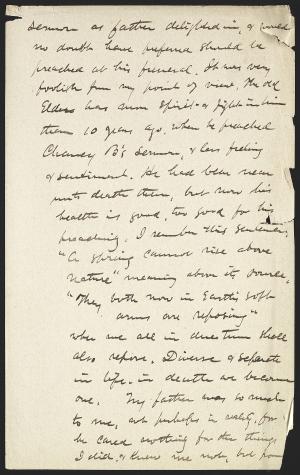 sermon as father delighted in, & would
no doubt have preferred should be
preached at his funeral. It was very
foolish from my point of view. The old
Elder has more spirit & fight in him
than 10 years ago, when he preached
Chancy B's sermon, & less feeling
& sentiment. He had been near
unto death then, but now his
health is good, too good for his
preaching. I remember this sentence;
"A Spring cannot rise above
nature" meaning above its source.
"They both now in Earth's soft
arms are reposing"
when we all in due time shall
also repose. Diverse & separate
in life - in death we become
one. My father was so much
to me, not perhaps in reality, for
he cared nothing for the things
I did, & knew me not, but from